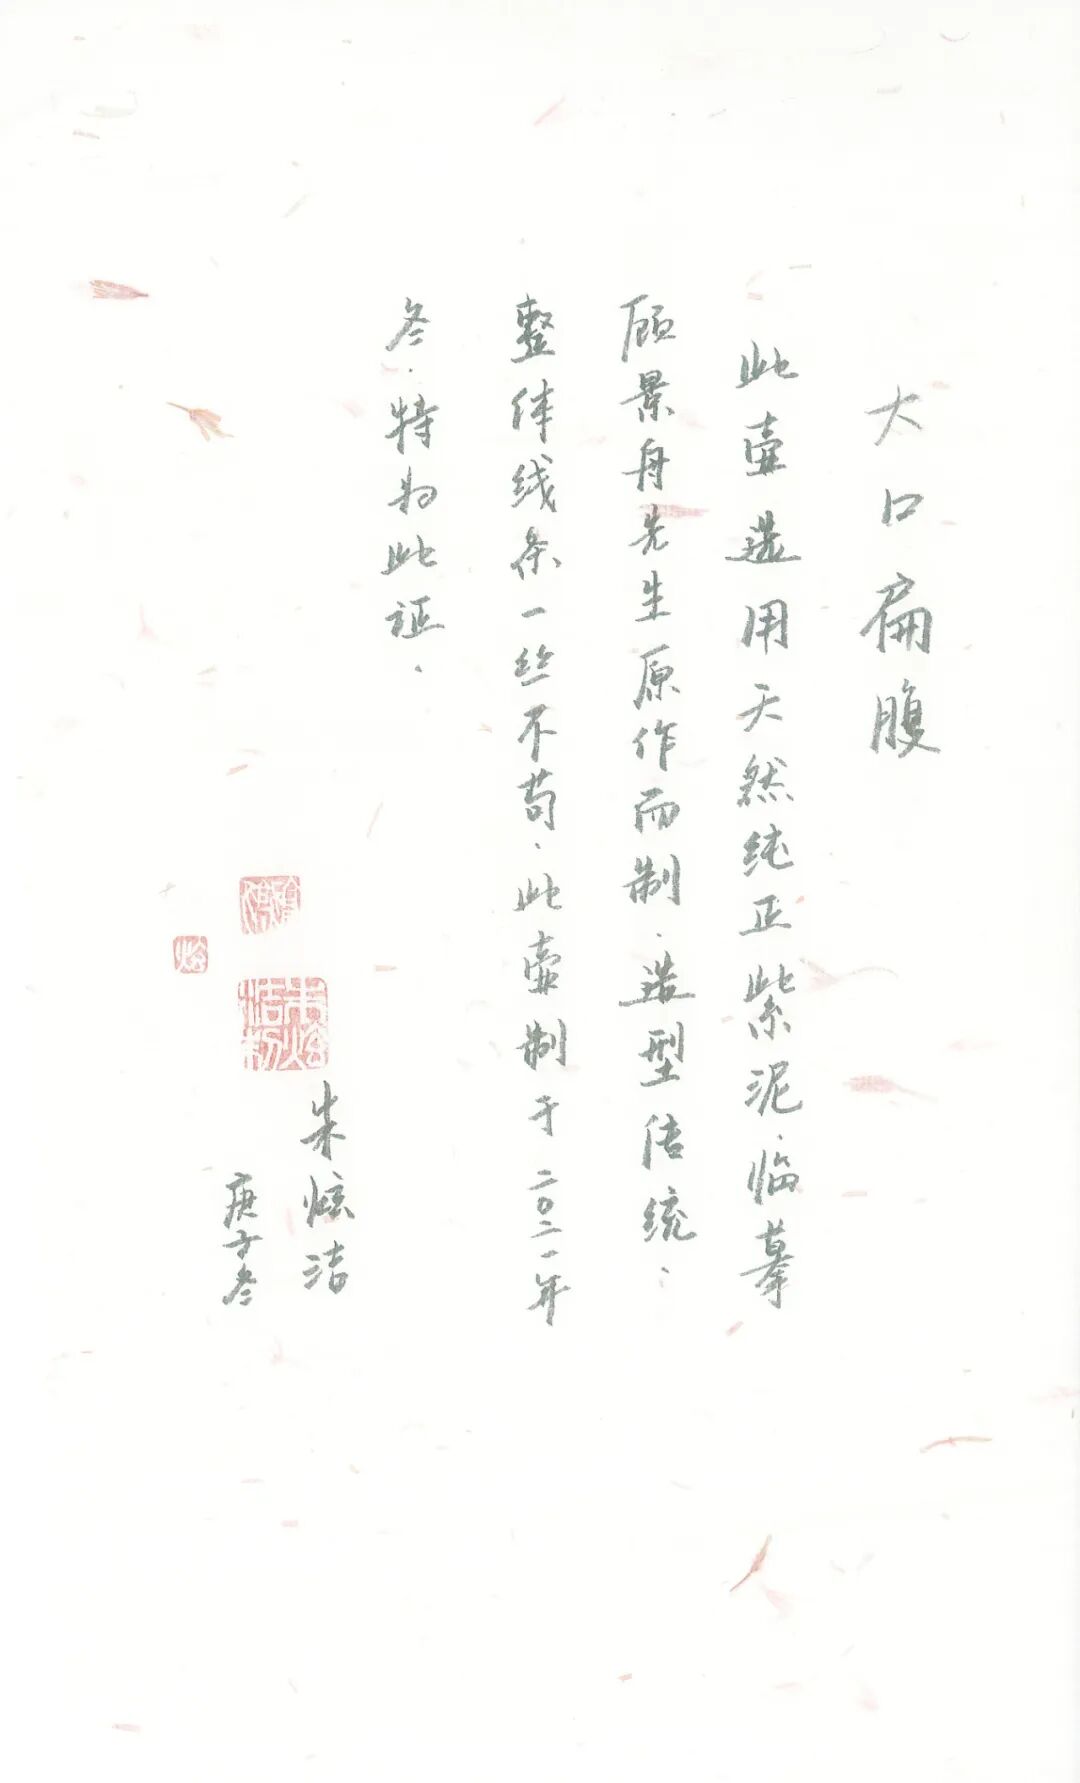 大口扁腹
此壶选用天然纯正紫泥、临摹
顾景舟先生原作而制、造型传统、
整体线条一丝不苟、此壶制于二〇二一年
冬、特为此证、
朱炫洁
庚子冬
朱炫洁制
炫